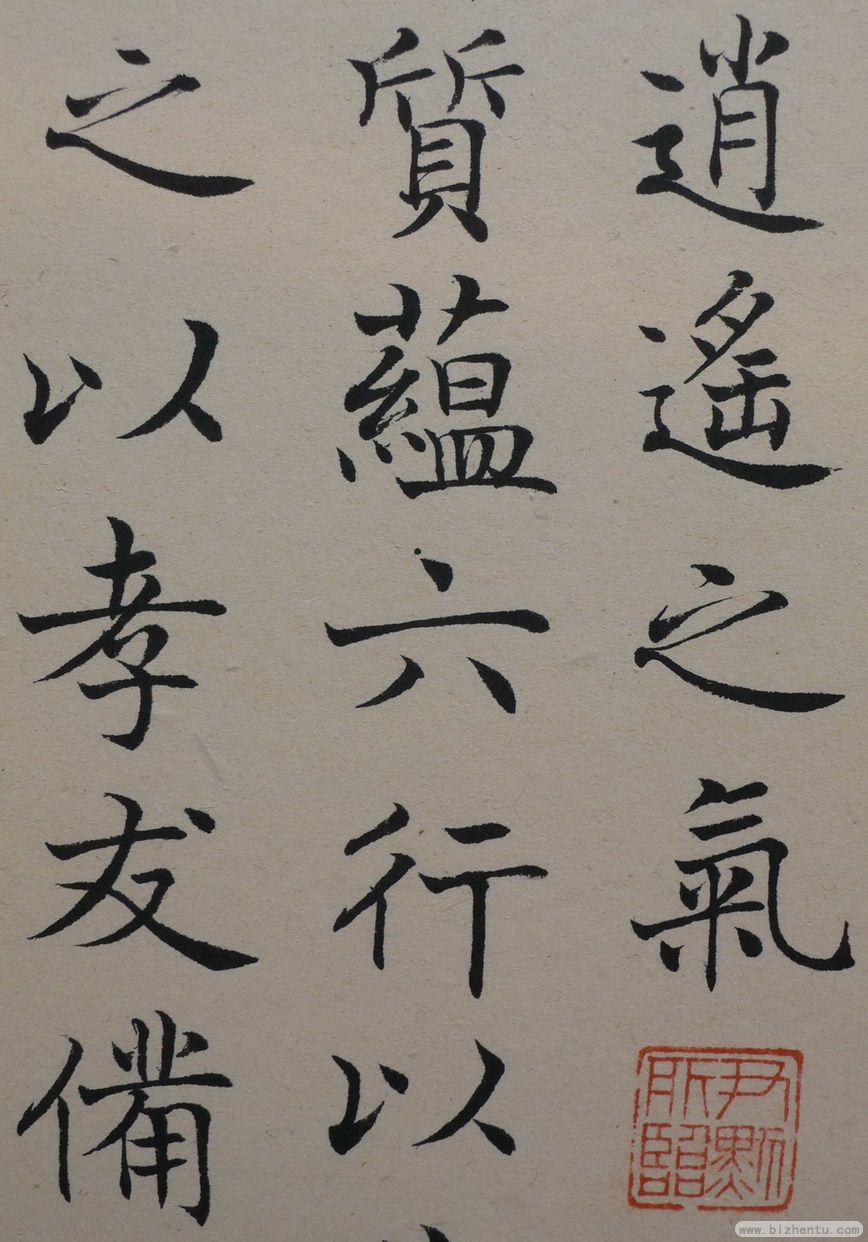 逍遙之氣
質蘊六行以
之以孝友備
尹勲所臨
www.bizhentu.com